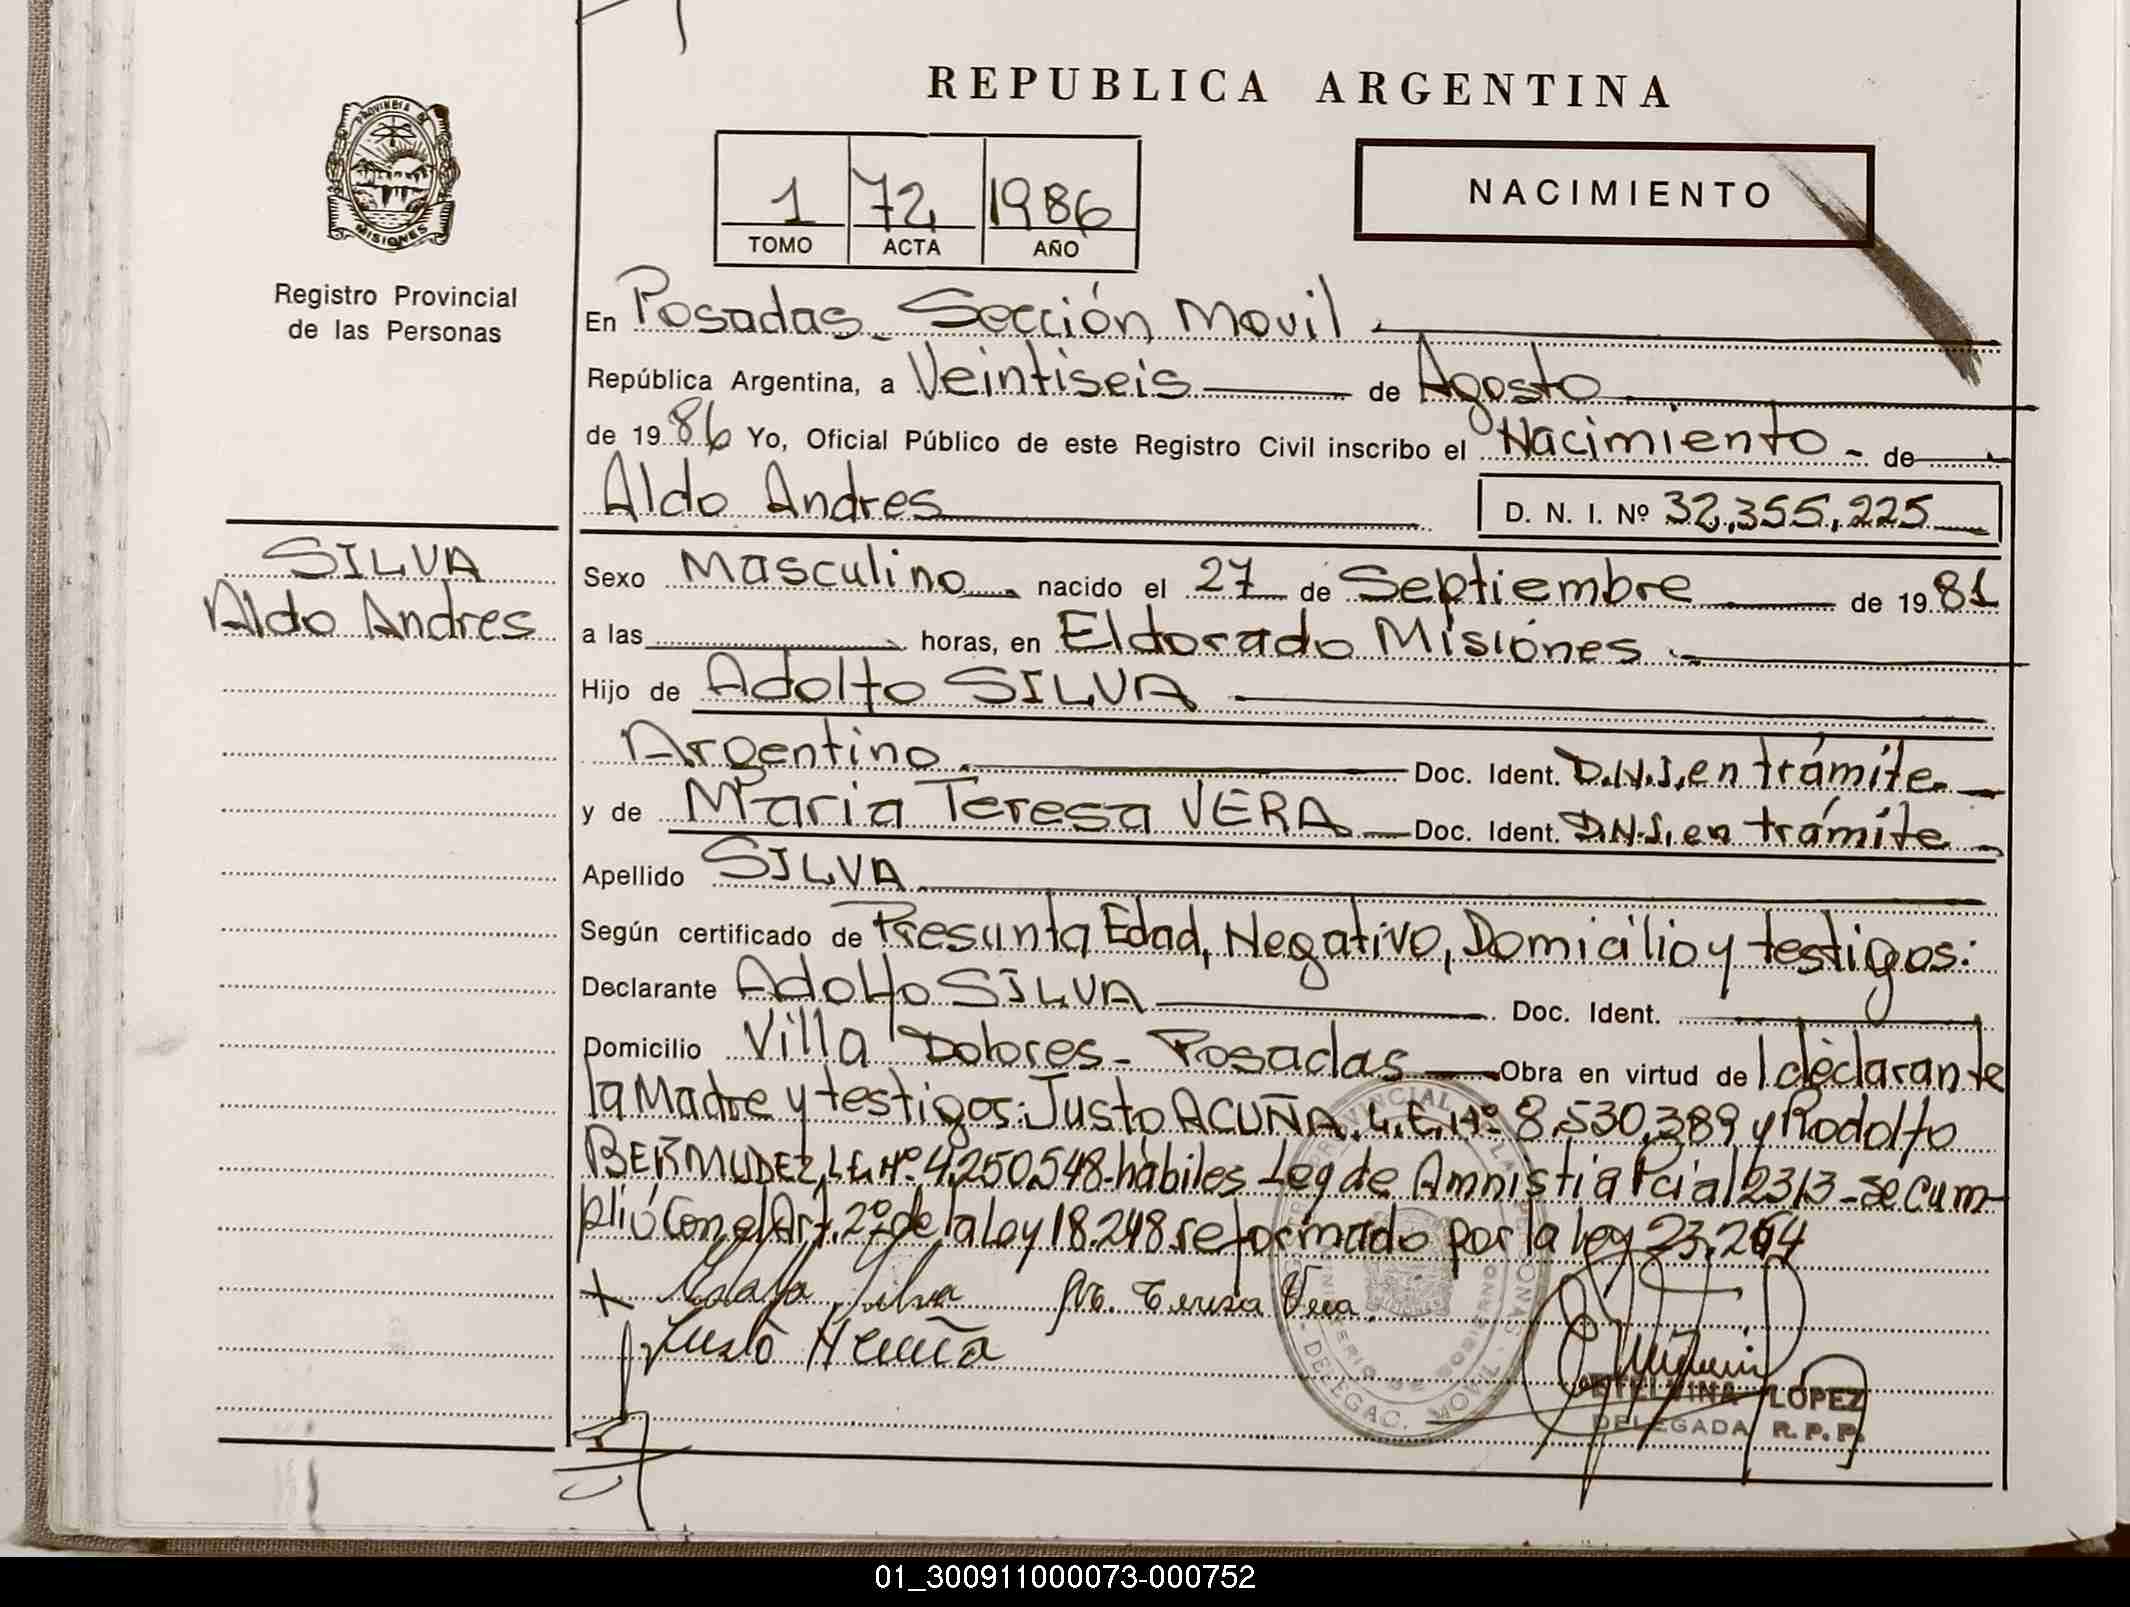 REPUBLICA ARGENTINA
PROVINCIA DE
MISIONES
Registro Provincial
de las Personas
1 72 1986
TOMO ACTA AÑO
NACIMIENTO
En Posadas - Sección Movil
República Argentina, a Veintiseis de Agosto
de 1986 Yo, Oficial Público de este Registro Civil inscribo el Nacimiento - de
Aldo Andres D. N. I. Nº 32,355,225
SILVA
Aldo Andres
Sexo Masculino nacido el 27 de Septiembre de 1981
a las horas, en Eldorado Misiones.
Hijo de Adolfo SILVA
Argentino Doc. Ident. D.N.I. en trámite
y de Maria Teresa VERA Doc. Ident. D.N.I. en trámite
Apellido SILVA
Según certificado de Presunta Edad, Negativo, Domicilio y testigos:
Declarante Adolfo SILVA Doc. Ident.
Domicilio Villa Dolores - Posadas Obra en virtud de l declarante
la Madre y testigos: Justo ACUÑA, L.E. Nº 8,530,389 y Rodolfo
BERMUDEZ, L.E. Nº 4.250.548 - hábiles Ley de Amnistia Pcial 2313 - se cum-
plió con el Art. 2º de la ley 18.248 reformado por la ley 23.264
Adolfo Silva Ma. Teresa Vera
Justo Acuña
LOPEZ
DELEGADA R. P. P.
01_300911000073-000752